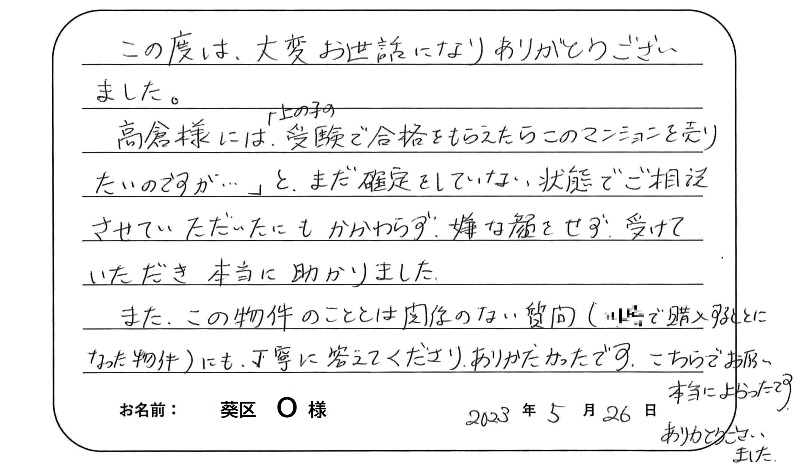 この度は、大変お世話になりありがとうござい
ました。
高倉様には、「上の子の受験で合格をもらえたらこのマンションを売り
たいのですが…」と、まだ確定をしていない状態でご相談
させていただいたにもかかわらず、嫌な顔をせず、受けて
いただき本当に助かりました。
また、この物件のこととは関係のない質問(で購入することに
なった物件)にも、丁寧に答えてくださり、ありがたかったです。こちらでお願い
本当によかったです
ありがとうござい
ました。
お名前: 葵区 O 様 2023年5月26日